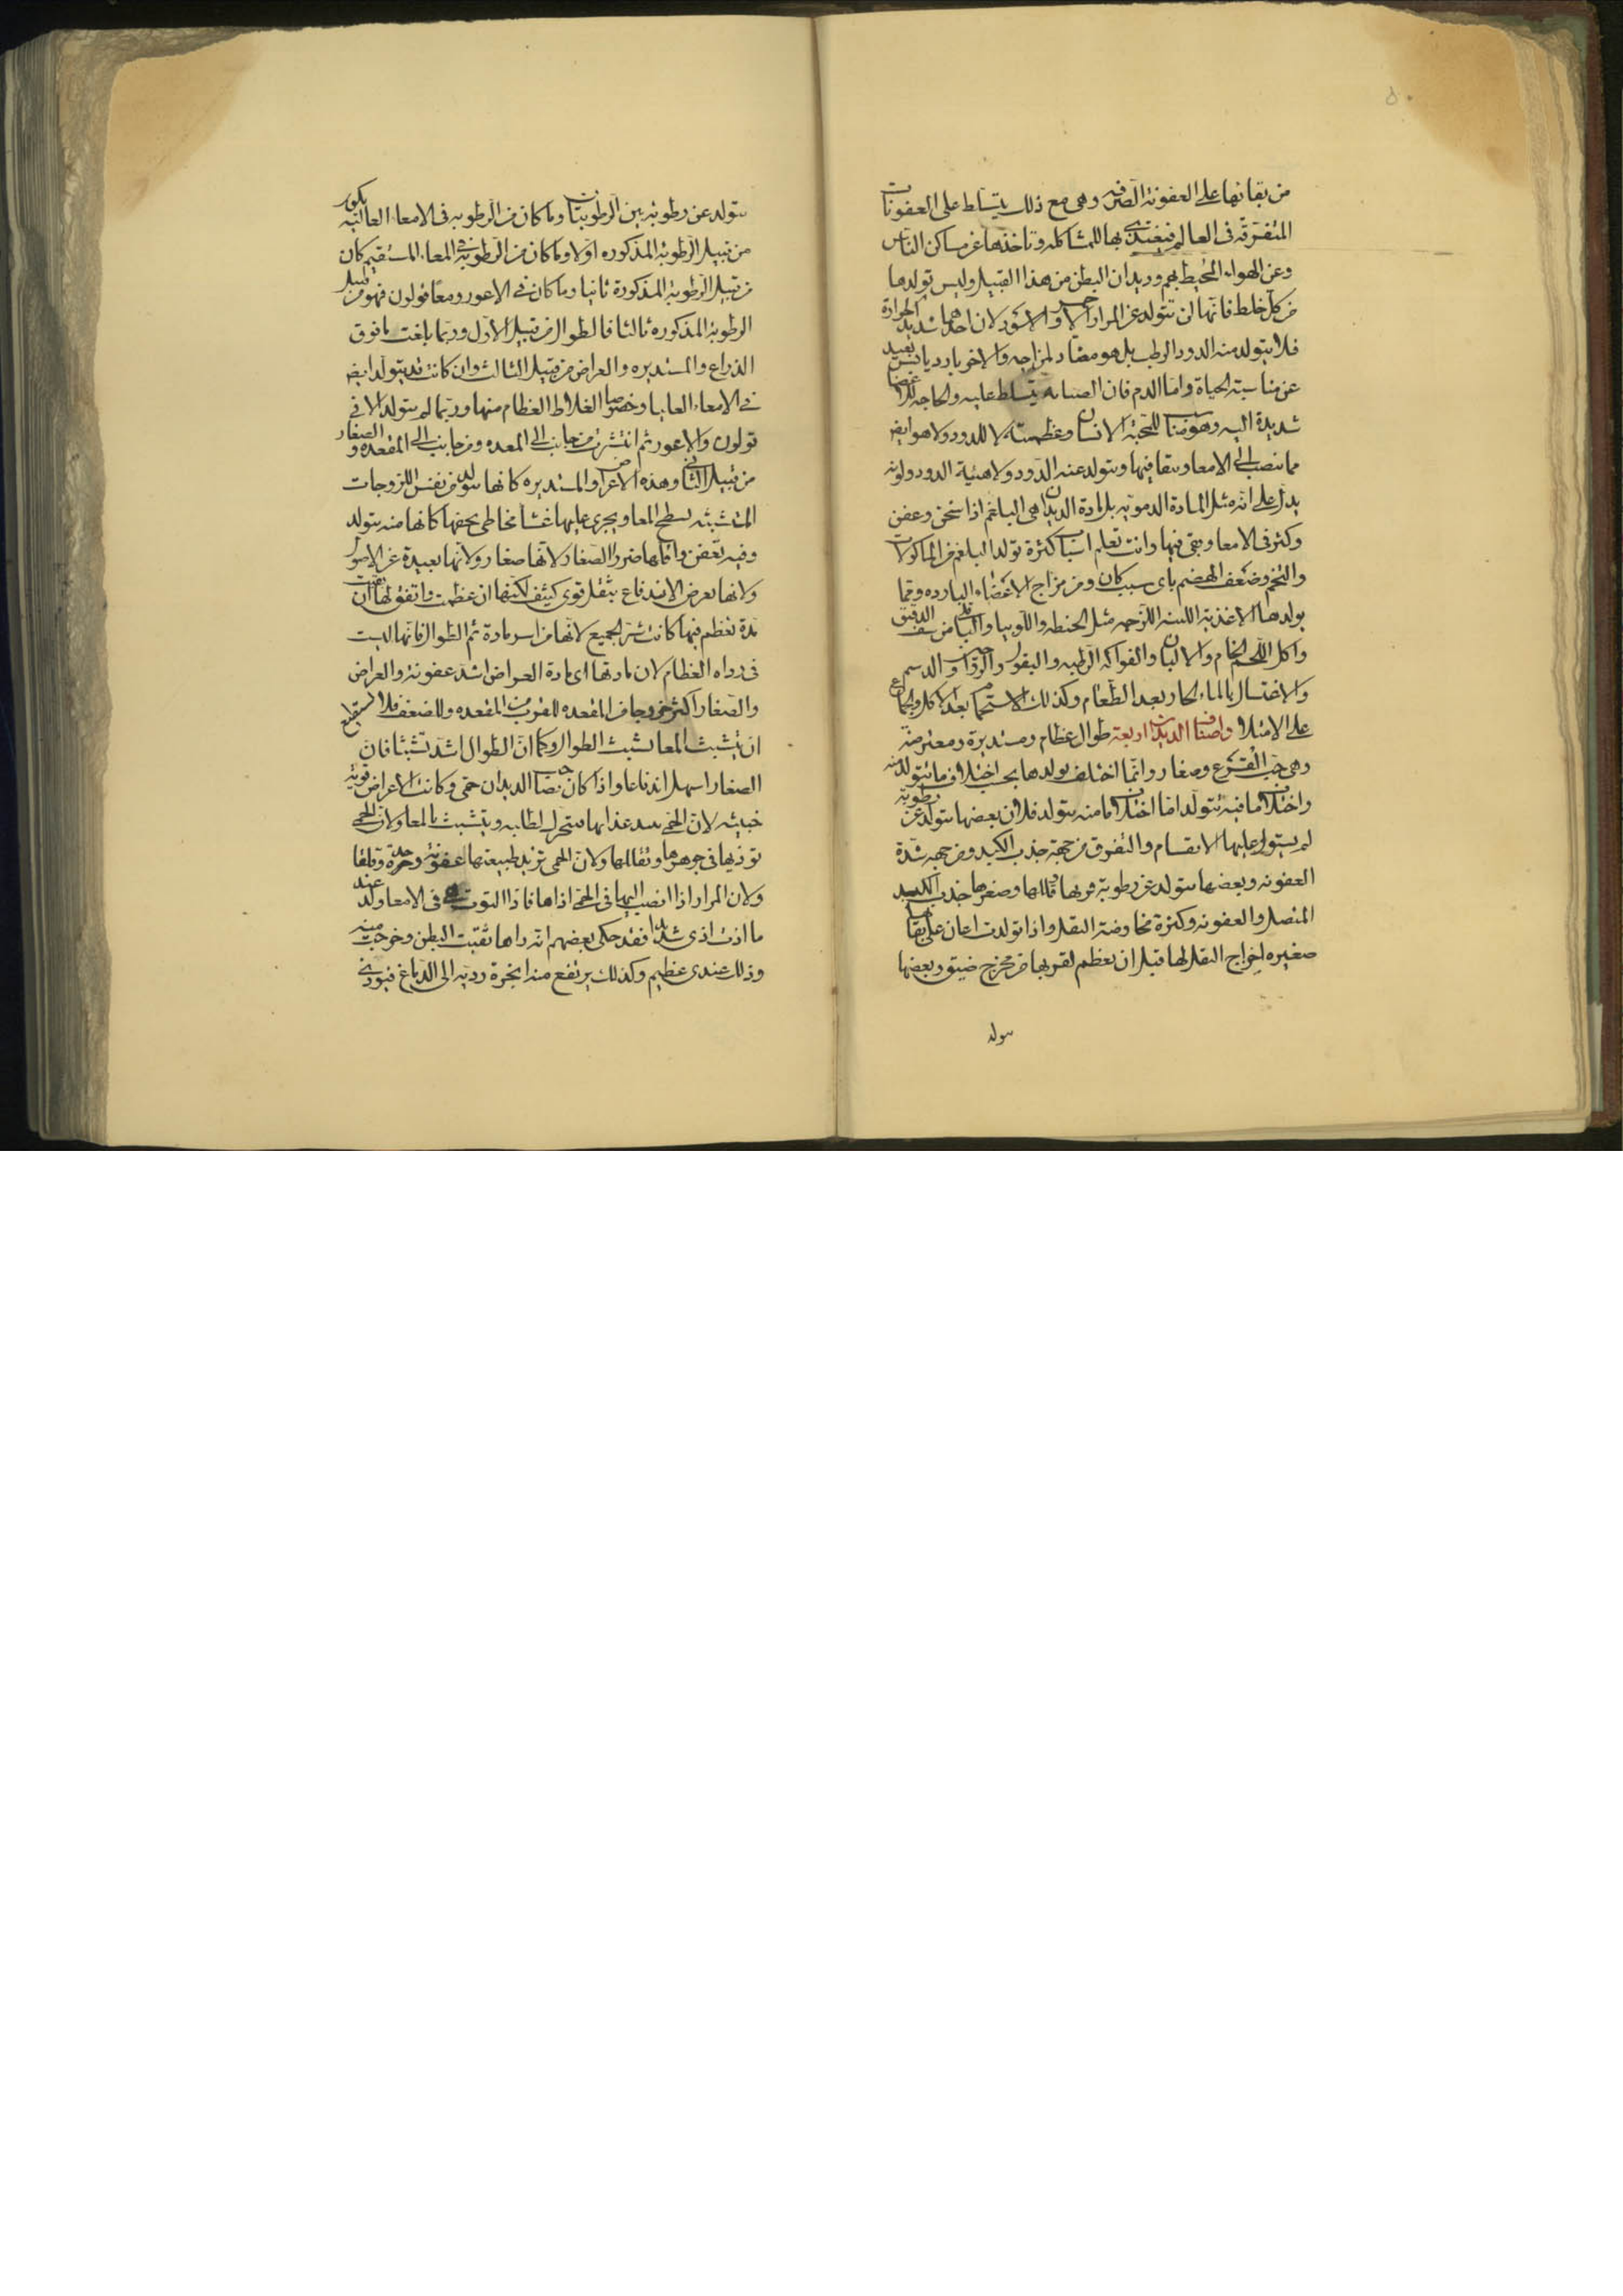 من بقائها على العفونة الصرفه وهى مع ذلك يتسلط على العفونات
المتفرقه فى العالم فيغتذى بها للمشاكله وتاخذها عن مساكن الناس
وعن الهواء المحيط بهم وديدان البطن من هذا القبيل وليس تولدها
من كل خلط فانها لن تتولد عن المرار الاحمر والاسود لان احدهما شديد الحرارة
فلا يتولد منه الدود الرطب بل هو مضاد لمزاجه والاخر بارد يابس بعيد
عن مناسبة الحياة واما الدم فان الصيانه يتسلط عليه والحاجه للاعضا
شديدة اليه وهو مناسب للحمية الانسان وعظميته لا للدود ولا هو ايضا
مما ينصب الى الامعا ويبقا فيها ويتولد عنه الدود ولا هيئة الدود ولونه
يدل على انه مثل المادة الدمويه بل مادة الديدان هى البلغم اذا سخن وعفن
وكثر فى الامعا وبقى فيها وانت تعلم اسباب كثرة تولد البلغم من الماكولات
والتخم وضعف الهضم باى سبب كان ومن مزاج الاعضاء البارده ومما
يولدها الاغذيه اللينه اللزجه مثل الحنطه واللوبيا والباقلى من سف الدقيق
واكل اللحم الخام والالبان والفواكه الرطبه والبقول والرواصيل والدسم
والاغتسال بالماء الحار بعد الطعام وكذلك الاستحمام بعد الاكل والجماع
على الامتلا واصناف الديدان اربعة طوال عظام ومستديرة ومعترضه
وهى حب القرع وصغار وانما اختلف تولدها بحسب اختلاف ما تتولد منه
واختلاف ما فيه تتولد اما اختلاف ما منه يتولد فلان بعضها يتولد عن رطوبه
لم يستول عليها الانقسام والتفرق من جهة جذب الكبد ومن جهه شدة
العفونه وبعضها يتولد عن رطوبة فرقها قللها وصغرها جذب الكبد
المتصل والعفونه وكثرة مخاوضة الثقل واذا تولدت اعان على بقائها
صغيره اخراج الثقل لها قبل ان يعظم لقربها من مخرج ضيق وبعضها
يتولد
يتولد عن رطوبة بين الرطوبتين وما كان من الرطوبه فى الامعاء العاليه يكون
من قبيل الرطوبة المذكوره اولا وما كان من الرطوبة فى المعاء المستقيم كان
من قبيل الرطوبة المذكورة ثانيا وما كان فى الاعور ومعا قولون فهو من قبيل
الرطوبة المذكوره ثالثا فالطوال من قبيل الاول وربما بلغت ما فوق
الذراع والمستديره والعراض من قبيل الثالث وان كانت قد يتولد ايضا
فى الامعاء العليا وخصوصا الغلاظ العظام منها وربما لم يتولد الا فى
قولون والاعور ثم انتشرت من جانب الى المعده ومن جانب الى المقعده والصغار
من قبيل الثانى وهذه الاعراض والمستديره كانها يتولد من نفس اللزوجات
المتشبثه بسطح المعا ويجرى عليها غشا مخاطى يجنها كانها منه يتولد
وفيه تعفن واقلها ضررا الصغار لانها صغار ولانها بعيدة عن الاصول
ولانها بعرض الاندفاع بثقل قوى كثيف لكنها ان عظمت واتفق لها ان
مدة تعظم فيها كانت شر الجميع لانها من اسر مادة ثم الطوال فانها ليست
فى رداه العظام لان مادتها اى مادة العراض اشد عفونة والعراض
والصغار اكثر خروجا من المقعده للقرب من المقعده وللضعف فلا يستطيع
ان يتشبث بالمعا تشبث الطوال وكما ان الطوال اشد تشبثا فان
الصغار اسهل اندفاعا واذا كان بصاحب الديدان حمى وكانت الاعراض قويه
خبيثه لان الحمى تبيد غذايها فتتحرك لطلبه ويتشبث بالمعا ولان الحمى
توذيها فى جوهرها وتقلقها ولان الحمى تزيد طبيعتها عفونة وحدة وقلقا
ولان المرار اذا انصب اليها فى الحمى اذاها فاذا التوت فى الامعا ولد عند
ما اذت اذى شديدا فقد حكى بعضهم انه راها نقبت البطن وخرجت منه
وذلك عندى عظيم وكذلك يرتفع منه ابخرة رديه الى الدماغ فيوذى